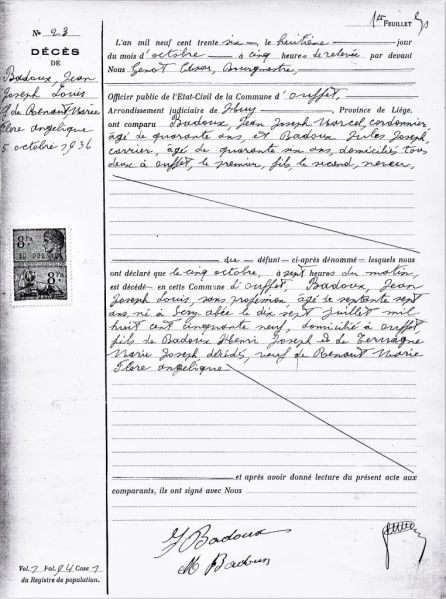 1er FEUILLET
No 23
DÉCÈS
DE
Badoux, Jean
Joseph Louis
de Renaut Marie
Flore Angélique
5 octobre 1936
L'an mil neuf cent trente six, le huitième jour
du mois d'octobre à cinq heures de relevée par devant
Nous Genot César, Bourgmestre,
Officier public de l'Etat-Civil de la Commune d'Ouffet,
Arrondissement judiciaire de Huy, Province de Liège,
ont comparu Badoux, Jean Joseph Marcel, cordonnier
âgé de quarante ans, et Badoux Jules Joseph,
carrier, âgé de quarante six ans, domiciliés tous
deux à Ouffet, le premier, fils, le second, neveu,
du défunt ci-après dénommé lesquels nous
ont déclaré que le cinq octobre, à sept heures du matin,
est décédé en cette Commune d'Ouffet, Badoux, Jean
Joseph Louis, sans profession, âgé de septante sept
ans, né à Seny le dix sept juillet mil
huit cent cinquante neuf, domicilié à Ouffet
fils de Badoux Henri Joseph et de Termagne
Marie Joseph décédés, veuf de Renaut Marie
Flore Angélique
et après avoir donné lecture du présent acte aux
comparants, ils ont signé avec Nous
J Badoux
M Badoux
8 FR
8 FR
Vol. 7 Fol. 94 Case 7
du Registre de population.